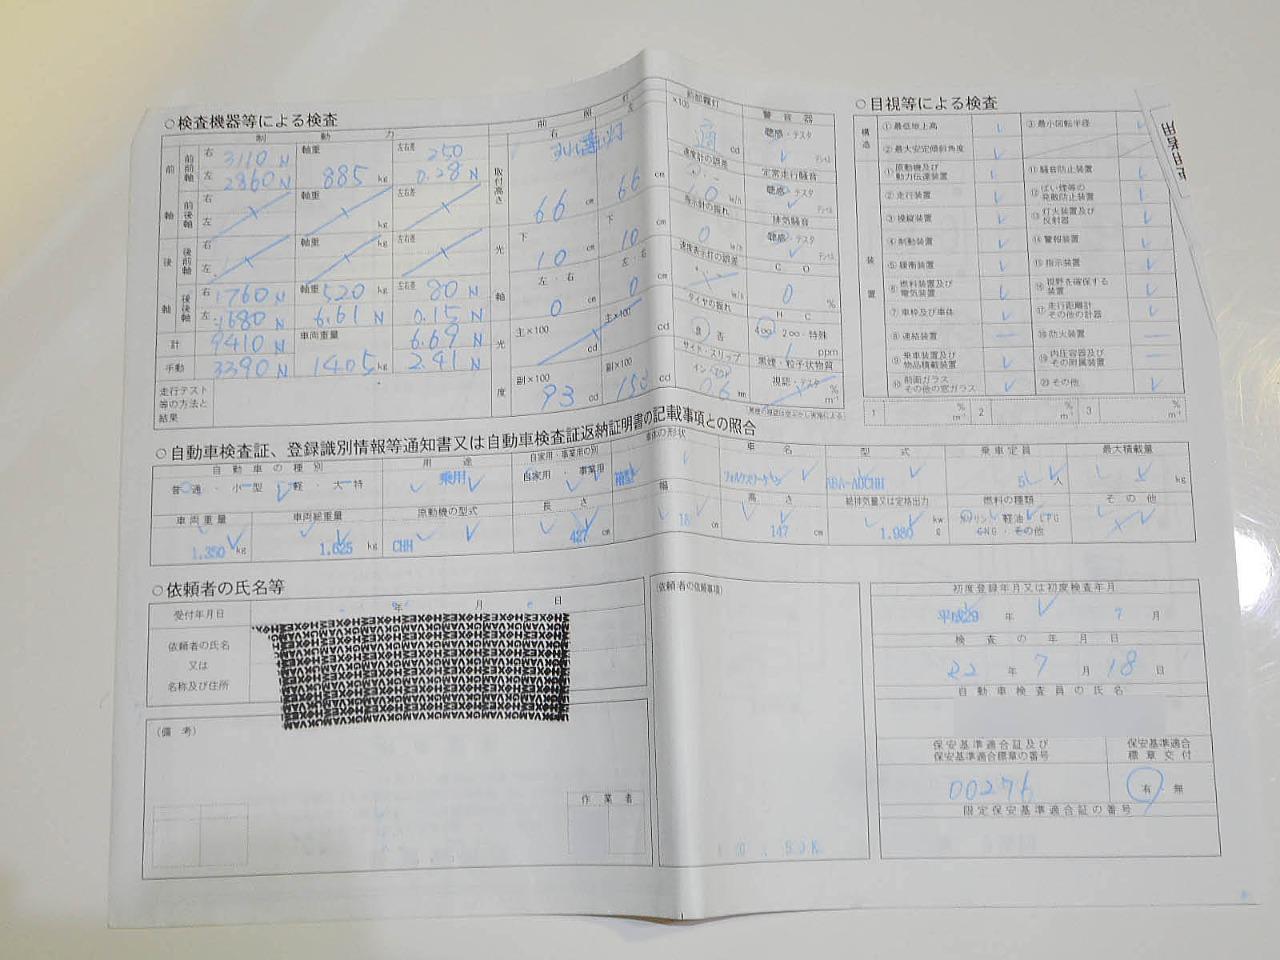 ○検査機器等による検査
制 動 力
前 照 灯
前部霧灯
警 音 器
前軸 前前軸 右 3110 N 軸重 885 kg 左右差 250
左 2860 N 0.28 N
前後軸 右 軸重 kg 左右差
左
後軸 後前軸 右 軸重 kg 左右差
左
後後軸 右 1760 N 軸重 520 kg 左右差 80 N
左 1680 N 6.61 N 0.15 N
計 9410 N 車両重量 6.69 N
手動 3390 N 1405 kg 2.41 N
走行テスト
等の方法と
結果
右 左
取付高さ 66 cm 66 cm
光軸 下 10 cm 下 10 cm
左・右 0 cm 左・右 0 cm
光度 主×100 cd 主×100 cd
副×100 93 cd 副×100 cd
×100 適 cd
速度計の誤差
km/h
指示計の振れ
0 km/h
速度表示灯の誤差
km/h
タイヤの振れ
良 否
サイド・スリップ
イン
mm
聴感・テスタ
デシベル
定常走行騒音
聴感・テスタ
デシベル
排気騒音
聴感・テスタ
デシベル
C O
0 %
H C
400 200・特殊
ppm
黒煙・粒子状物質
視認・テスタ
%
m⁻¹
○目視等による検査
構造 ①最低地上高 ③最小回転半径
②最大安定傾斜角度
装置 ①原動機及び動力伝達装置 ⑪騒音防止装置
②走行装置 ⑫ばい煙等の発散防止装置
③操縦装置 ⑬灯火装置及び反射器
④制動装置 ⑭警報装置
⑤緩衝装置 ⑮指示装置
⑥燃料装置及び電気装置 ⑯視野を確保する装置
⑦車枠及び車体 ⑰走行距離計その他の計器
⑧連結装置 ⑱防火装置
⑨乗車装置及び物品積載装置 ⑲内圧容器及びその附属装置
⑩前面ガラスその他の窓ガラス ⑳その他
1 % m⁻¹ 2 % m⁻¹ 3 % m⁻¹
○自動車検査証、登録識別情報等通知書又は自動車検査証返納証明書の記載事項との照合
自動車の種別 用 途 自家用・事業用の別 車体の形状 車 名 型 式 乗車定員 最大積載量
普通・小型・軽・大特 乗用 自家用・事業用 箱型 フォルクスワーゲン ABA-AUCHH 5 人 kg
車両重量 車両総重量 原動機の型式 長 さ 幅 高 さ 総排気量又は定格出力 燃料の種類 その他
1.350 kg 1.625 kg CHH 427 cm cm 147 cm 1.980 kw ℓ ガソリン・軽油・LPG
CNG・その他
○依頼者の氏名等
受付年月日 年 月 日
依頼者の氏名
又は
名称及び住所
(備 考)
作 業 者
(依頼者の依頼事項)
初度登録年月又は初度検査年月
平成29 年 7 月
検 査 の 年 月 日
R2 年 7 月 18 日
自動車検査員の氏名
保安基準適合証及び
保安基準適合標章の番号
保安基準適合
標章交付
00276
有・無
限定保安基準適合証の番号